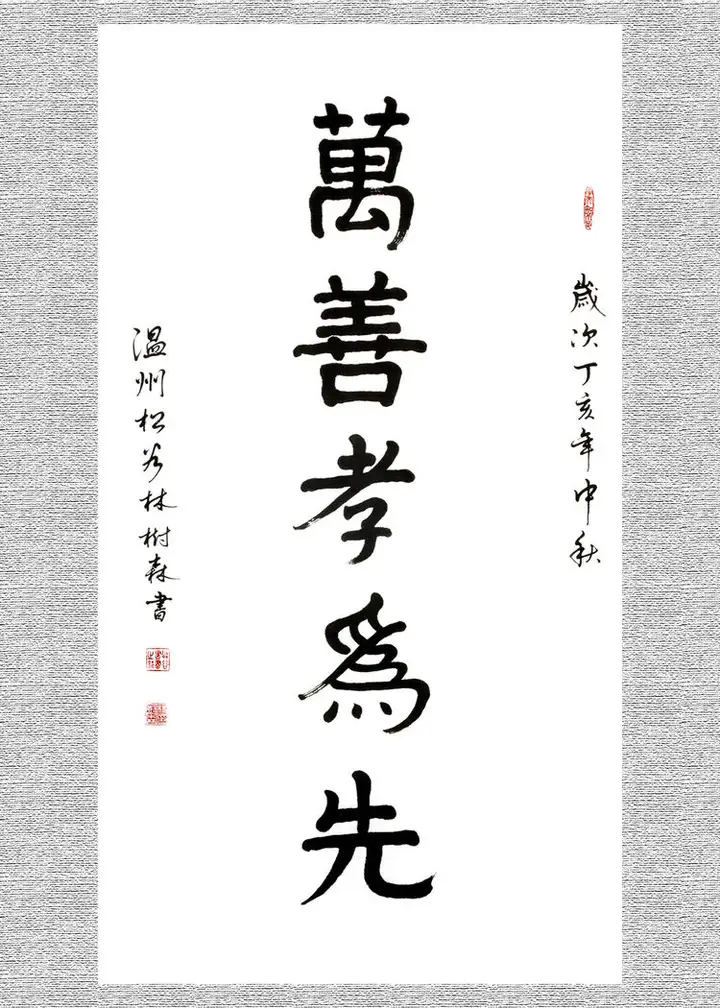 歲次丁亥年中秋
萬善孝爲先
温州松谷林樹森書